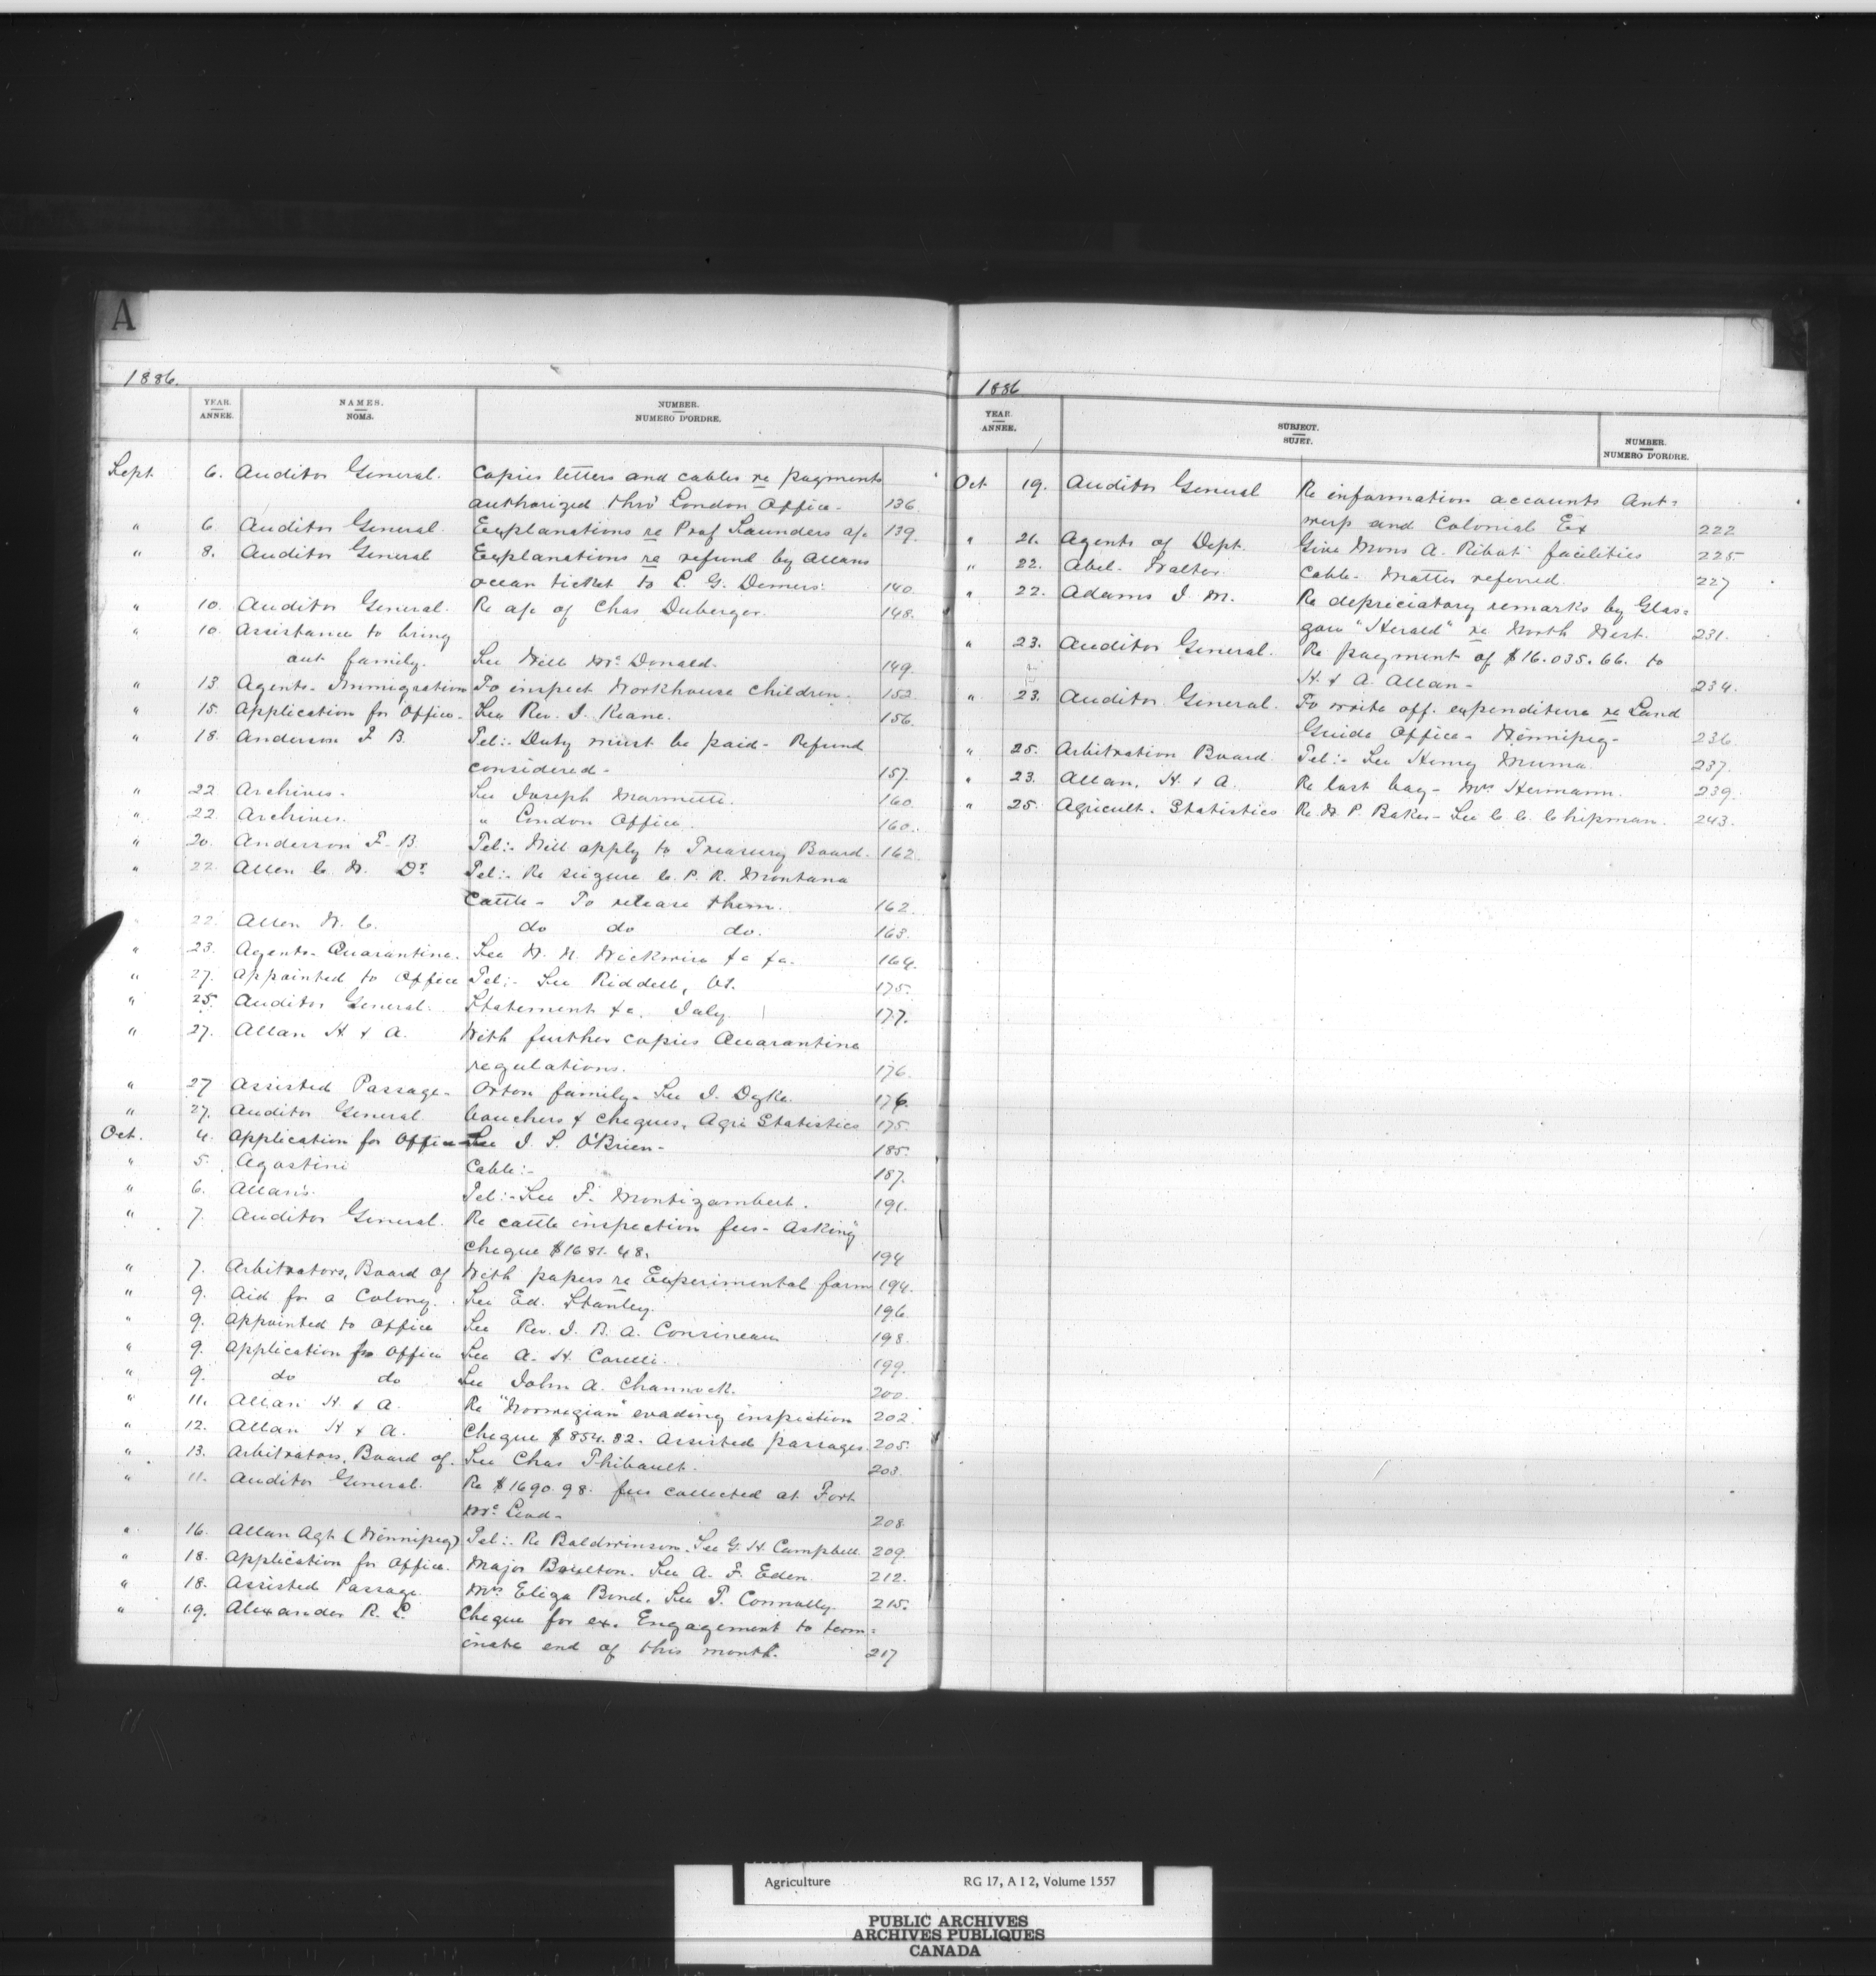 A
1886.
YEAR. ANNEE.
NAMES. NOMS.
NUMBER. NUMERO D'ORDRE.
Sept 6. Auditor General. Copies letters and cables re payments
authorized thro' London Office - 136
" 6 Auditor General. Explanations re Prof Saunders a/c 139.
" 8. Auditor General Explanations re refund by Allans
ocean ticket to L. G. Demers. 140
" 10. Auditor General. Re a/c of Chas Duberger. 148.
" 10. Assistance to bring
out family. See Will McDonald. 149.
" 13 Agents - Immigration To inspect Workhouse children. 152
" 15. Application for Office - See Rev. J. Keane. 156.
" 18. Anderson F B. Tel:- Duty must be paid - Refund
considered - 157.
" 22 Archives - See Joseph Marmette. 160.
" 22. Archives. " London Office. 160.
" 20. Anderson F. B. Tel:- Will apply to Treasury Board. 162.
" 22. Allen C. W. Dr Tel:- Re seizure C. P. R. Montana
Cattle - To release them. 162.
" 22. Allen W. C. do do do. 163.
" 23. Agents - Quarantine. See W. N. Wickwire &c &c. 164.
" 27. Appointed to Office Tel:- See Riddell, 175.
" 25. Auditor General. Statement &c. July. 177.
" 27. Allan H & A. With further copies Quarantine
regulations. 176.
" 27 Assisted Passage - Orton family - See J. Dyke. 176.
" 27. Auditor General. Vouchers & cheques, Agri Statistics 175.
Oct. 4. Application for Office See J. S. O'Brien - 185.
" 5. Agostini Cable:- 187.
" 6. Allan's. Tel:- See F. Montizambert. 191.
" 7. Auditor General. Re cattle inspection fees - Asking
cheque $1681.48. 194
" 7. Arbitrators, Board of With papers re Experimental farm 194.
" 9. Aid for a Colony. See Ed. Stanley. 196
" 9. Appointed to Office See Rev. J. B. A. Cousineau 198.
" 9. Application for Office See A. H. Corelli. 199.
" 9. do do See John A. Channock. 200.
" 11. Allan H & A. Re "Norwegian" evading inspection 202.
" 12. Allan H & A. Cheque $854.82. Assisted passages. 205.
" 13. Arbitrators, Board of. See Chas Thibault. 203.
" 11. Auditor General. Re $1690.98. fees collected at Fort
McLeod - 208.
" 16. Allan Agt (Winnipeg) Tel:- Re Baldwinson. See G. H. Campbell. 209.
" 18. Application for Office. Major Boulton. See A. F. Eden. 212.
" 18. Assisted Passage. Mrs Eliza Bond. See T. Connolly. 215.
" 19. Alexander R. L. Cheque for ex. Engagement to term=
inate end of this month. 217
1886
YEAR. ANNEE.
SUBJECT. SUJET.
NUMBER. NUMERO D'ORDRE.
Oct 19. Auditor General Re information accounts Ant=
werp and Colonial Ex 222
" 21. Agents of Dept. Give Mons A. Ribot facilities 225.
" 22. Abel - Walter. Cable - Matter referred. 227
" 22. Adams J. M. Re depreciatory remarks by Glas=
gow "Herald" re North West. 231.
" 23. Auditor General. Re payment of $16.035.66. to
H. & A. Allan - 234.
" 23. Auditor General. To write off. expenditure re Land
Guide Office - Winnipeg - 236.
" 25. Arbitration Board. Tel:- See Henry Muma. 237.
" 23. Allan, H. & A. Re lost bag - Mrs Hermann. 239.
" 25. Agricult. Statistics Re W. P. Baker - See C. C. Chipman. 243.
Agriculture RG 17, A I 2, Volume 1557
PUBLIC ARCHIVES
ARCHIVES PUBLIQUES
CANADA